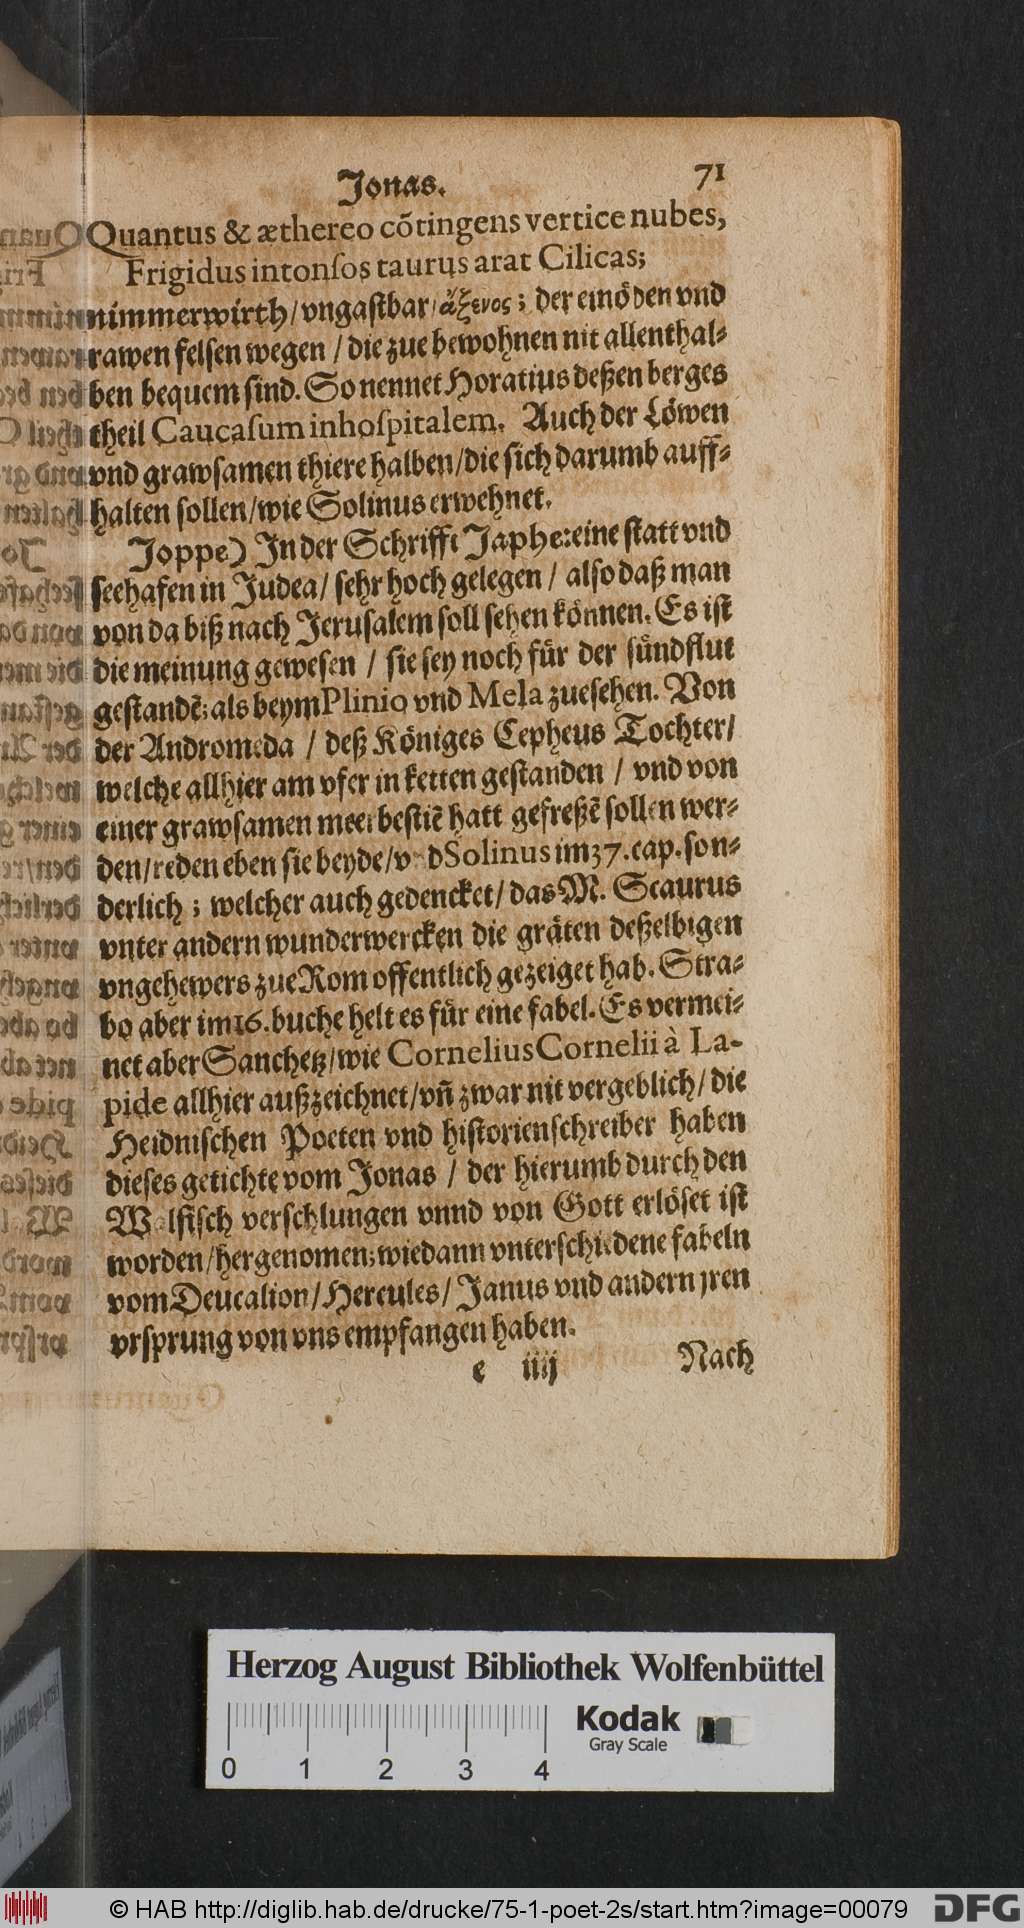 Jonas. 71
Quantus & æthereo cõtingens vertice nubes,
Frigidus intonſos taurus arat Cilicas;
nimmerwirth / vngastbar / ἄξενος; der einöden vnd
rawen felsen wegen / die zue bewohnen nit allenthal-
ben bequem sind. So nennet Horatius deßen berges
theil Caucaſum inhoſpitalem. Auch der Löwen
vnd grawsamen thiere halben / die sich darumb auff-
halten sollen / wie Solinus erwehnet.
Joppe) In der Schrifft Japhe: eine statt vnd
seehafen in Judea / sehr hoch gelegen / also daß man
von da biß nach Jerusalem soll sehen können. Es ist
die meinung gewesen / sie sey noch für der sündflut
gestandē; als beym Plinio vnd Mela zuesehen. Von
der Andromeda / deß Königes Cepheus Tochter /
welche allhier am vfer in ketten gestanden / vnd von
einer grawsamen meerbestiē hatt gefreßē sollen wer-
den / reden eben sie beyde / vnd Solinus im 37. cap. son-
derlich; welcher auch gedencket / das M. Scaurus
vnter andern wunderwercken die gräten deßelbigen
vngehewers zue Rom offentlich gezeiget hab. Stra-
bo aber im 16. buche helt es für eine fabel. Es vermei-
net aber Sanchetz / wie Cornelius Cornelii à La-
pide allhier außzeichnet / vñ zwar nit vergeblich / die
Heidnischen Poeten vnd historienschreiber haben
dieses getichte vom Jonas / der hierumb durch den
Walfisch verschlungen vnnd von Gott erlöset ist
worden / hergenomen; wie dann vnterschiedene fabeln
vom Deucalion / Hercules / Janus vnd andern jren
vrsprung von vns empfangen haben.
e iiij Nach
Herzog August Bibliothek Wolfenbüttel
Kodak
Gray Scale
0 1 2 3 4
© HAB http://diglib.hab.de/drucke/75-1-poet-2s/start.htm?image=00079 DFG